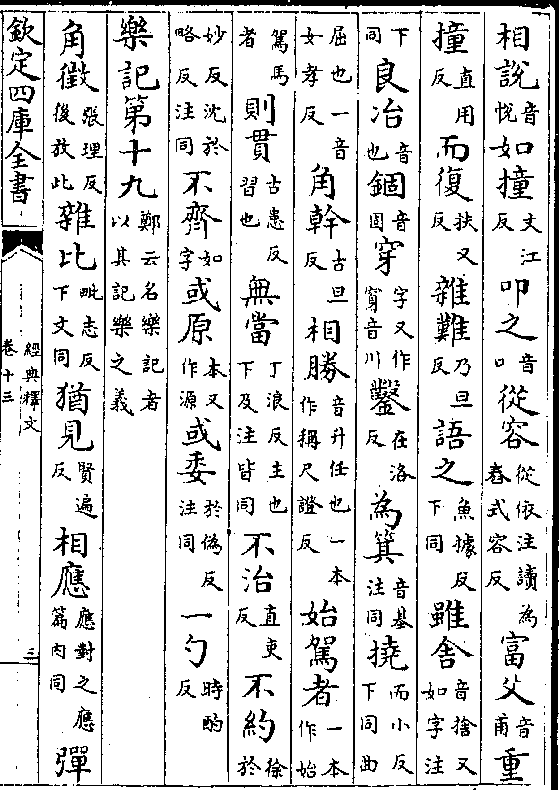 相說音悅如撞丈江反叩之音口從容從依注讀為舂式容反富父音甫重
撞直用反而復扶又反雜難乃旦反語之魚據反下同雖舍音捨又如字注
下同良冶音也錮音固穿字又作音川鑿在洛反為箕音基注同撓而小反下同曲
屈也一音女孝反角幹古旦反相勝音升任也一本作稱尺證反始駕者一本作始
駕馬者則貫古患反習也無當丁浪反主也下及注皆同不治直吏反不約徐於
妙反沈於略反注同不齊如字或原本又作源或委於偽反注同一勺時酌反
樂記第十九鄭云名樂記者以其記樂之義
角徵張理反後放此雜比毗志反下文同猶見賢遍反相應應對之應篇內同彈
欽定四庫全書
經典釋文
卷十三
三